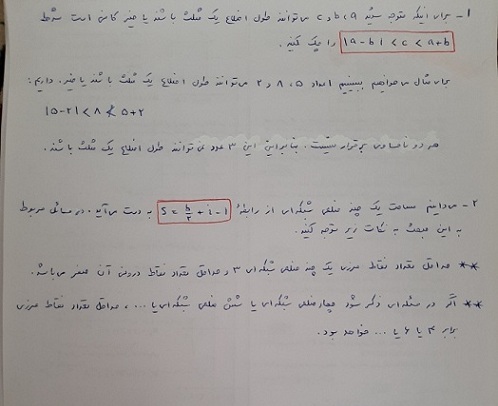 ۱- برای اینکه متوجه شوید a، b و c می‌توانند طول اضلاع یک مثلث باشند یا خیر کافی است شرط
|a-b| < c < a+b را چک کنید.
برای مثال می‌خواهیم ببینیم اعداد ۵، ۸ و ۲ می‌توانند طول اضلاع یک مثلث باشند یا خیر. داریم:
|۵-۲| < ۸ ≮ ۵+۲
هر دو نامساوی برقرار نیست. بنابراین این ۳ عدد نمی‌توانند طول اضلاع یک مثلث باشند.
۲- می‌دانیم مساحت یک چند ضلعی شبکه‌ای از رابطهٔ S = b/۲ + i - ۱ به دست می‌آید. در مسائل مربوط
به این مبحث به نکات زیر توجه کنید.
** حداقل تعداد نقاط مرزی یک چند ضلعی شبکه‌ای ۳ و حداقل تعداد نقاط درونی آن صفر می‌باشد.
** اگر در مسئله‌ای ذکر شود چهارضلعی شبکه‌ای یا شش ضلعی شبکه‌ای یا ...، حداقل تعداد نقاط مرزی
برابر ۴ یا ۶ یا ... خواهد بود.